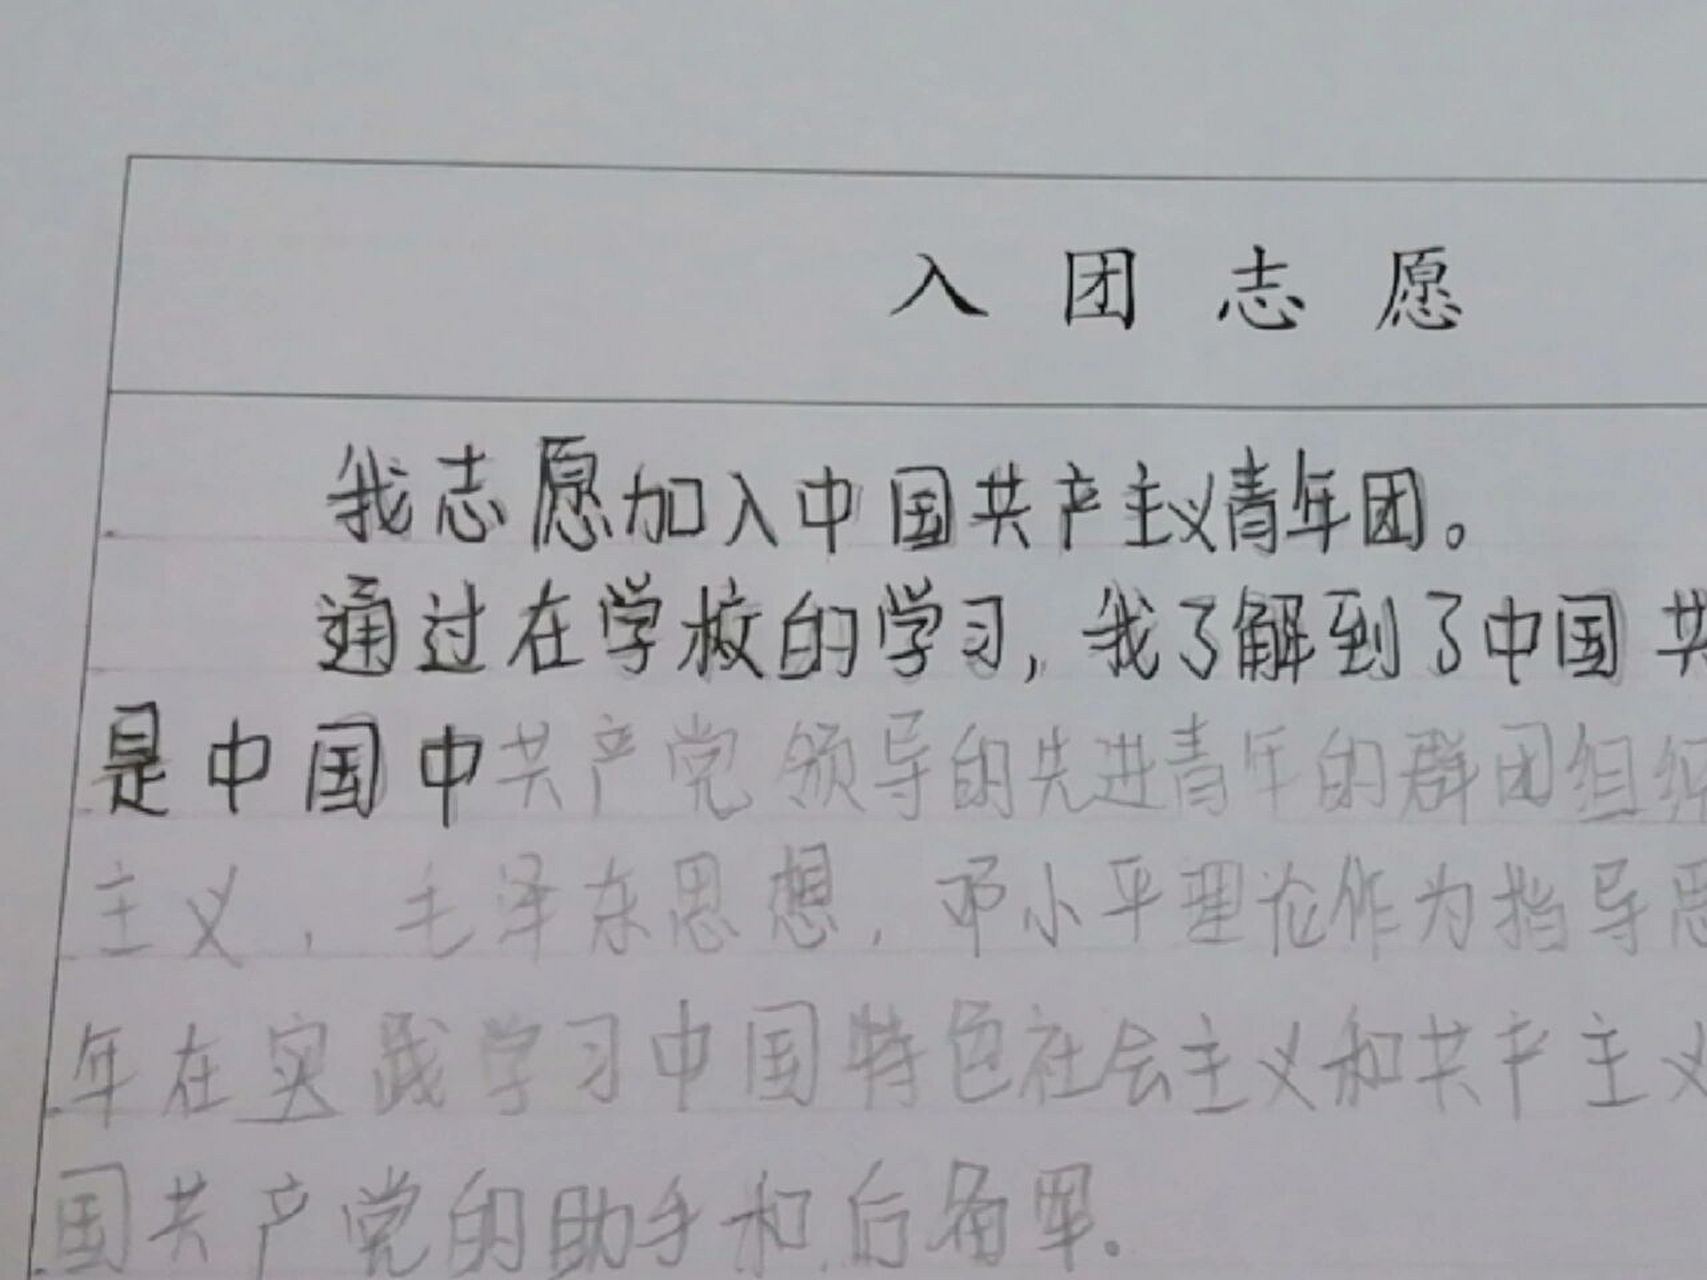 入团志愿
我志愿加入中国共产主义青年团。
通过在学校的学习,我了解到了中国共
是中国中共产党领导的先进青年的群团组织
主义,毛泽东思想,邓小平理论作为指导思
年在实践学习中国特色社会主义和共产主义
国共产党的助手和后备军。